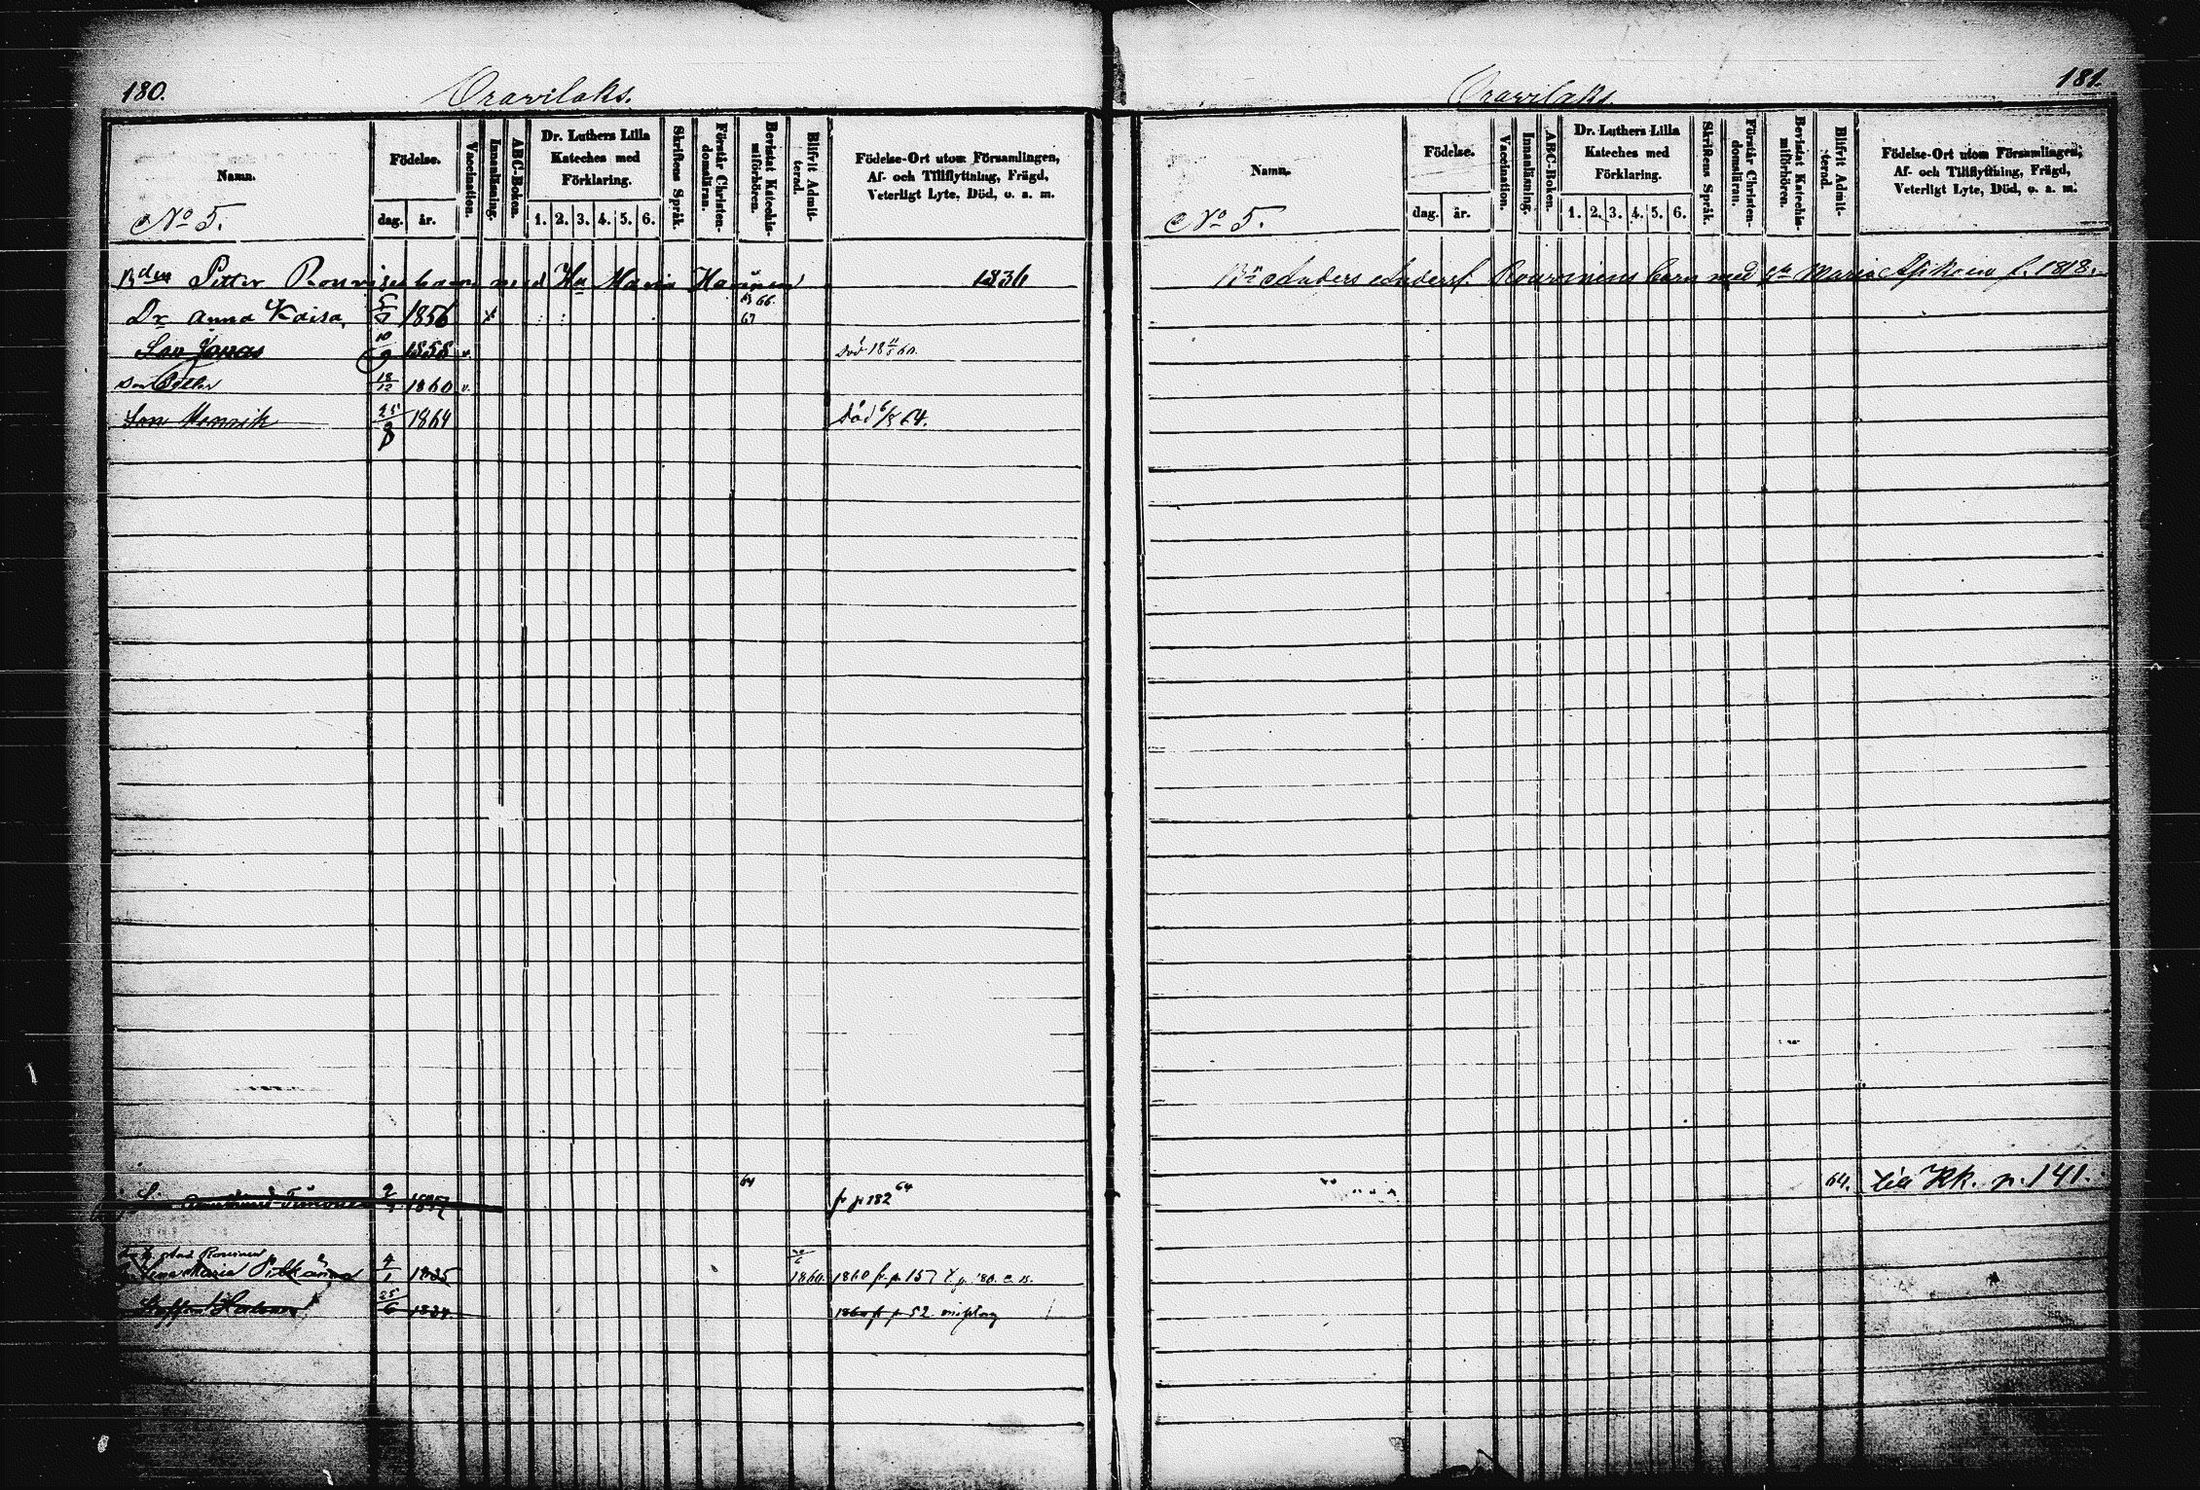 180.
Oravilaks.
Namn.
Födelse.
dag.
år.
Vaccination.
Innanläsning.
ABC-Boken.
Dr. Luthers Lilla
Kateches med
Förklaring.
1. 2. 3. 4. 5. 6.
Skriftens Språk.
Förstår Christen-
domsläran.
Bevistat Katechis-
miförhören.
Blifvit Admit-
terad.
Födelse-Ort utom Församlingen,
Af- och Tillflyttning, Frägd,
Veterligt Lyte, Död, o. a. m.
No 5.
Bden Petter barn med Hu Maria 1836
Dr Anna Kaisa, 1856 66
67
Son Jonas 10/9 1858 v. död 18 60.
Son Petter 18/12 1860 v.
Son Henrik 25/ 1864 död 64.
64
fr p 182 64
Maria Pitkänen 4/1 1835 1860 1860 fr p 157
Staffan 25/6 fr p 52
181.
Oravilaks.
Namn.
Födelse.
dag.
år.
Vaccination.
Innanläsning.
ABC-Boken.
Dr. Luthers Lilla
Kateches med
Förklaring.
1. 2. 3. 4. 5. 6.
Skriftens Språk.
Förstår Christen-
domsläran.
Bevistat Katechis-
miförhören.
Blifvit Admit-
terad.
Födelse-Ort utom Församlingen,
Af- och Tillflyttning, Frägd,
Veterligt Lyte, Död, o. a. m.
No 5.
Anders Andersf. barn med Maria f. 1818.
64. Kk. p. 141.